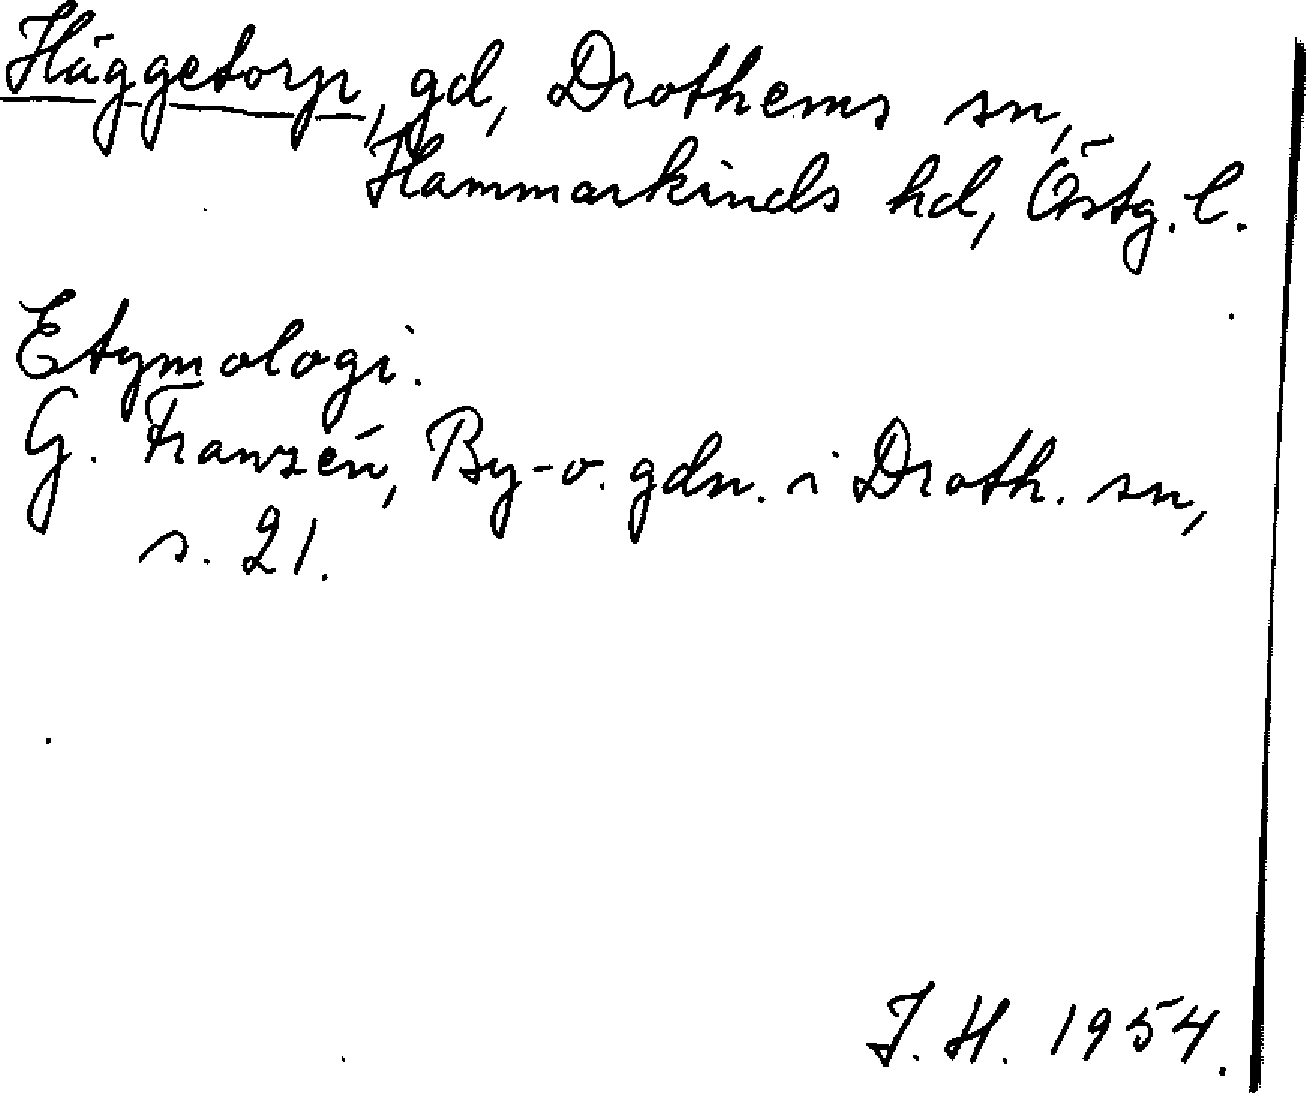 Häggetorp, gd, Drothems sn,
Hammarkinds hd, Östg. l.
Etymologi.
G. Franzén, By- o. gdn. i Droth. sn,
s. 21.
J. H. 1954.